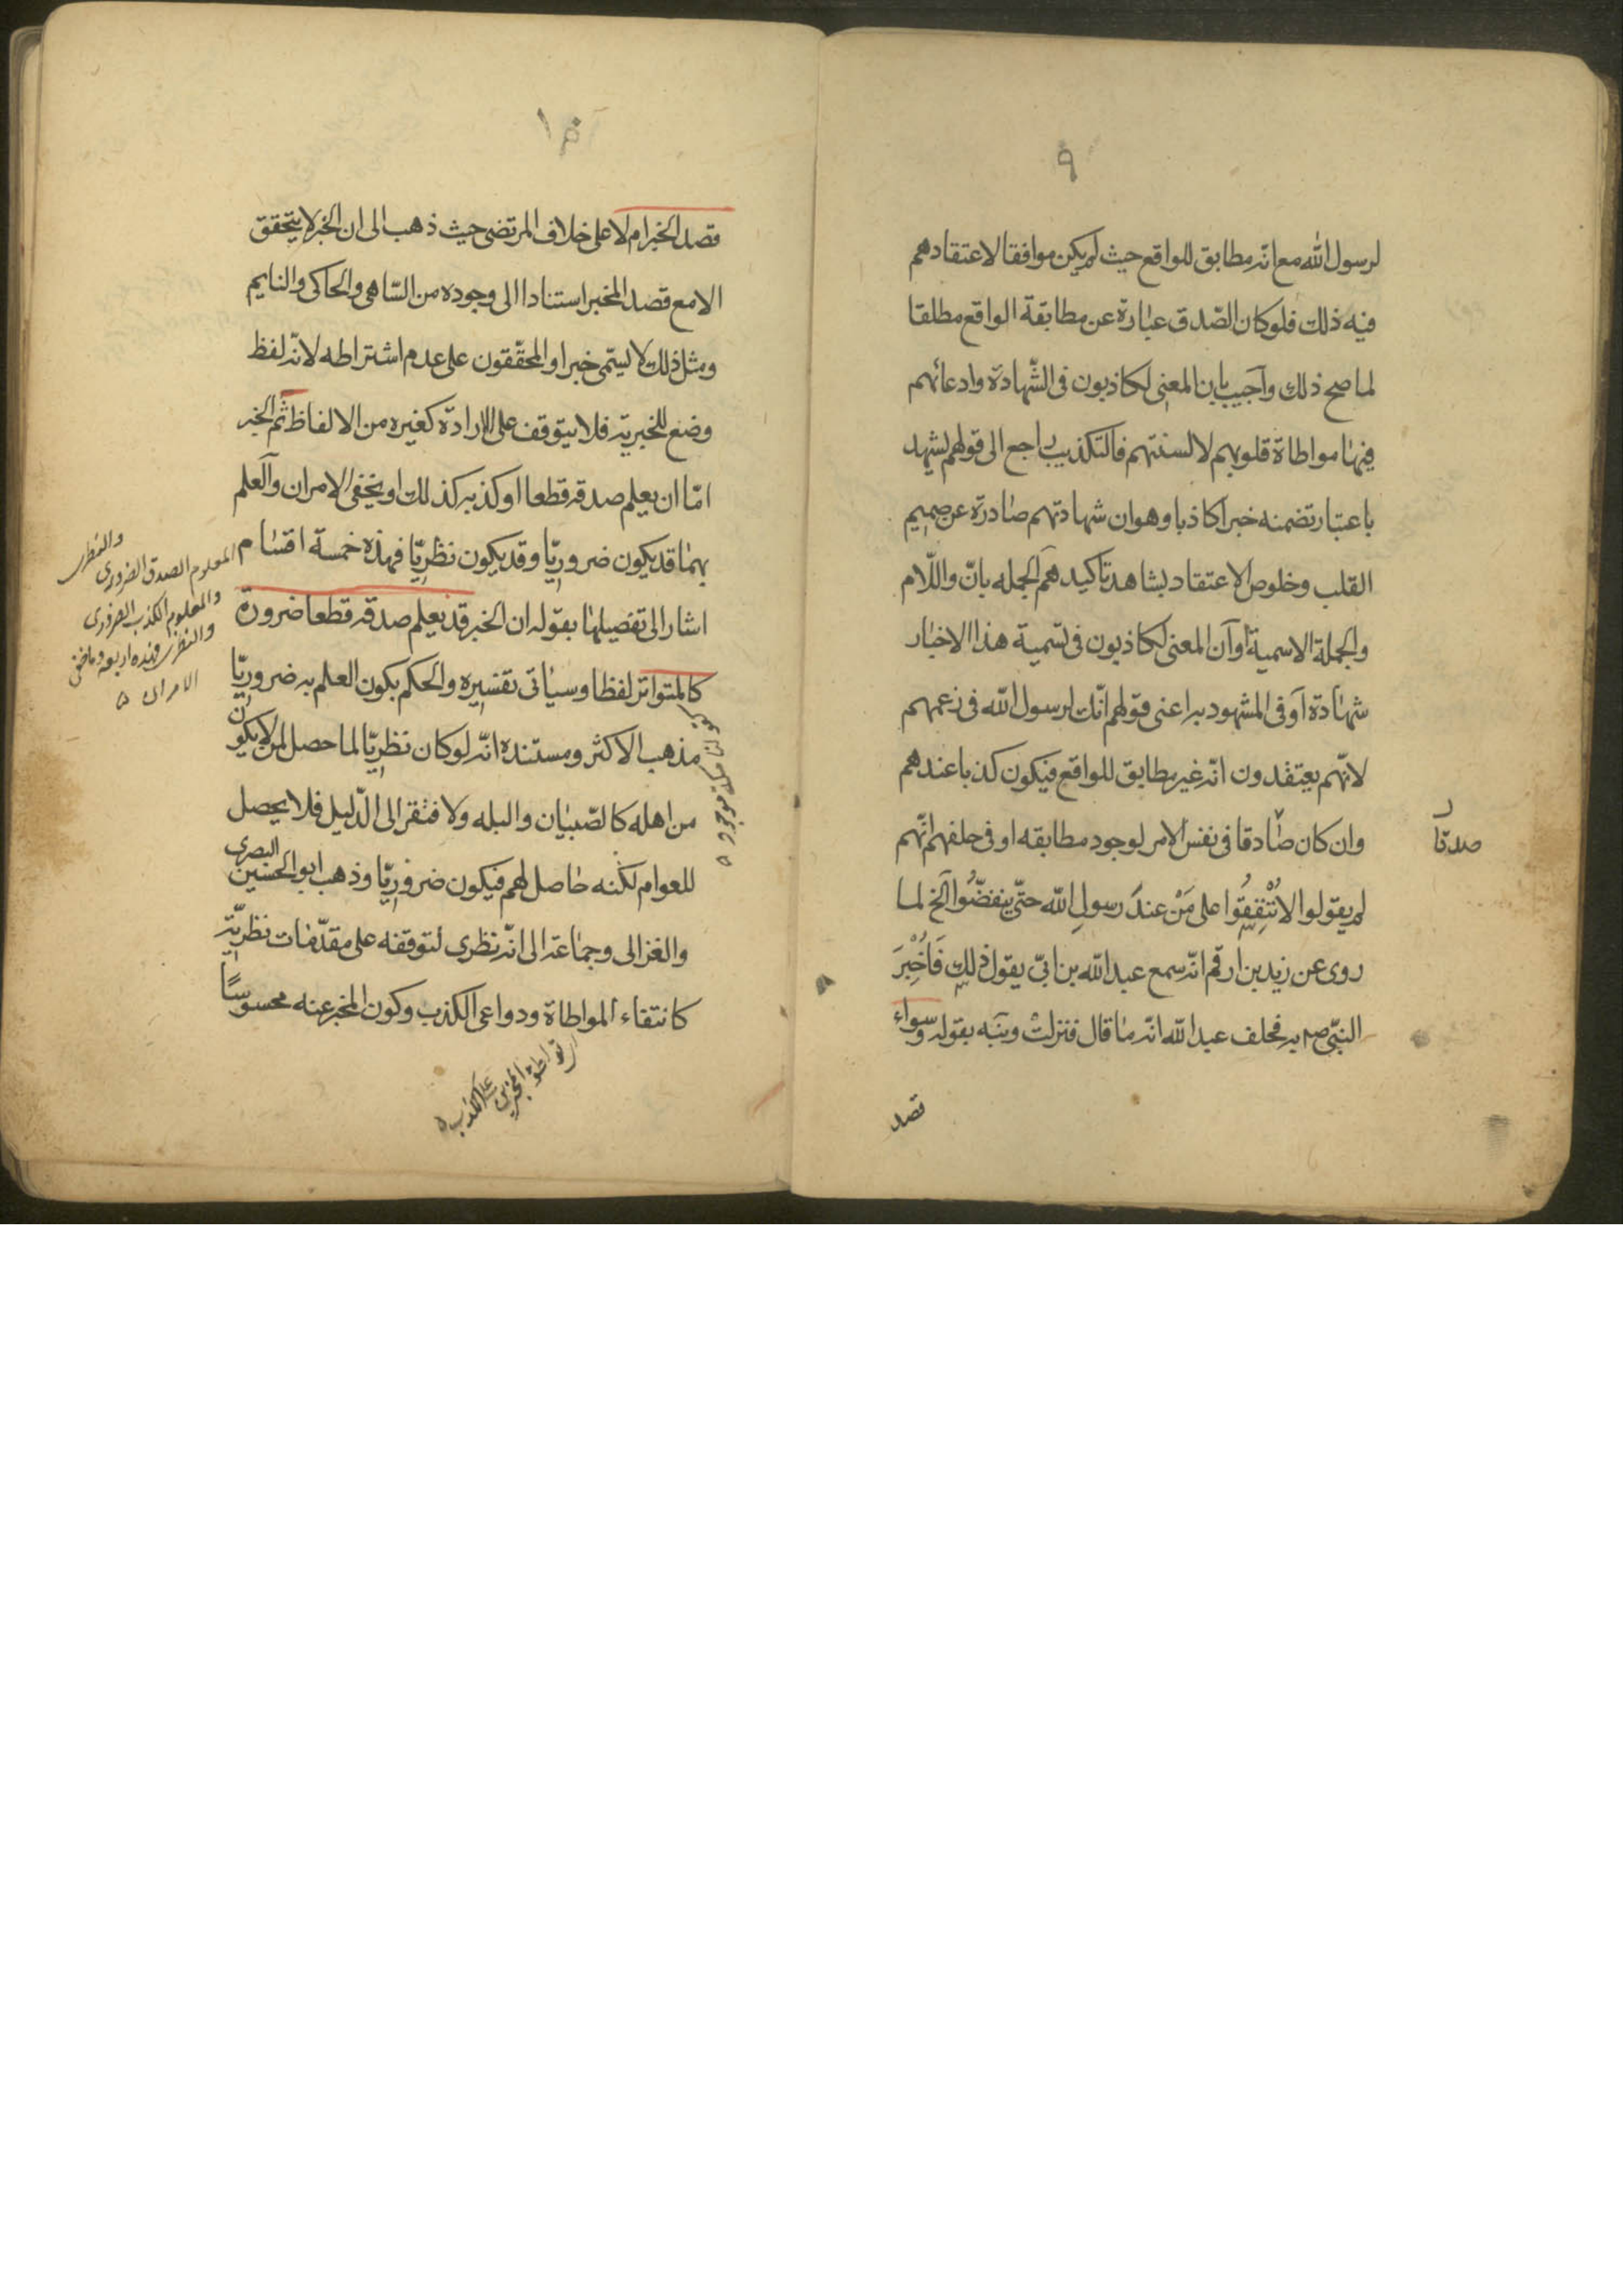 ٩
لرسول الله مع انه مطابق للواقع حيث لم يكن موافقا لاعتقادهم
فيه ذلك فلو كان الصّدق عبارة عن مطابقة الواقع مطلقا
لما صح ذلك واجيب بان المعنى لكاذبون فى الشّهادة وادعائهم
فيها مواطاة قلوبهم لالسنتهم فالتكذيب راجع الى قولهم نشهد
باعتبار تضمنه خبرا كاذبا وهو ان شهادتهم صادرة عن صميم
القلب وخلوص الاعتقاد بشاهد تاكيدهم الجمله بانّ واللّام
والجملة الاسمية او ان المعنى لكاذبون فى تسمية هذا الاخبار
شهادة او فى المشهود به اعنى قولهم انّك لرسول الله فى زعمهم
لانّهم يعتقدون انه غير مطابق للواقع فيكون كذبا عندهم
وان كان صادقا فى نفس الامر لوجود مطابقه او فى حلفهم انّهم
صدقا
لم يقولوا لا تُنْفِقُوا على مَنْ عندَ رسولِ الله حتّى ينفضّوا الخ لما
روى عن زيد بن ارقم انّه سمع عبد الله بن ابىّ يقول ذلك فَاُخْبِرَ
النبّى ص به فحلف عبد الله انه ما قال فنزلتْ ونبّه بقوله وسواء
قصد
١٠
قصد الخبر ام لا على خلاف المرتضى حيث ذهب الى ان الخبر لا يتحقق
الا مع قصد المخبر استنادا الى وجوده من السّاهى والحاكى والنايم
ومثل ذلك لا يسمّى خبرا والمحقّقون على عدم اشتراطه لانّه لفظ
وضع للخبريّة فلا يتوقف على الارادة كغيره من الالفاظ ثم الخبر
امّا ان يعلم صدقه قطعا او كذبه كذلك او يخفى الامران والعلم
بهما قد يكون ضروريّا وقد يكون نظريّا فهذه خمسة اقسام
المعلوم الصدق الضرورى
والنظرى
والمعلوم الكذب الضرورى
والنظرى فهذه اربعه وما خفى
الامران
اشار الى تفصيلها بقوله ان الخبر قد يعلم صدقه قطعا ضرورة
كالمتواتر لفظا وسياتى تفسيره والحكم بكون العلم به ضروريّا
كقولنا مكة موجوده
مذهب الاكثر ومستنده انّه لو كان نظريّا لما حصل لمن لا يكون
من اهله كالصّبيان والبله ولافتقر الى الدّليل فلا يحصل
للعوام لكنه حاصل لهم فيكون ضروريّا وذهب ابو الحسين البصرى
والغزالى وجماعة الى انّه نظرى لتوقفه على مقدّمات نظريّة
كانتفاء المواطاة ودواعى الكذب وكون المخبر عنه محسوسًا
المخبرين على الكذب